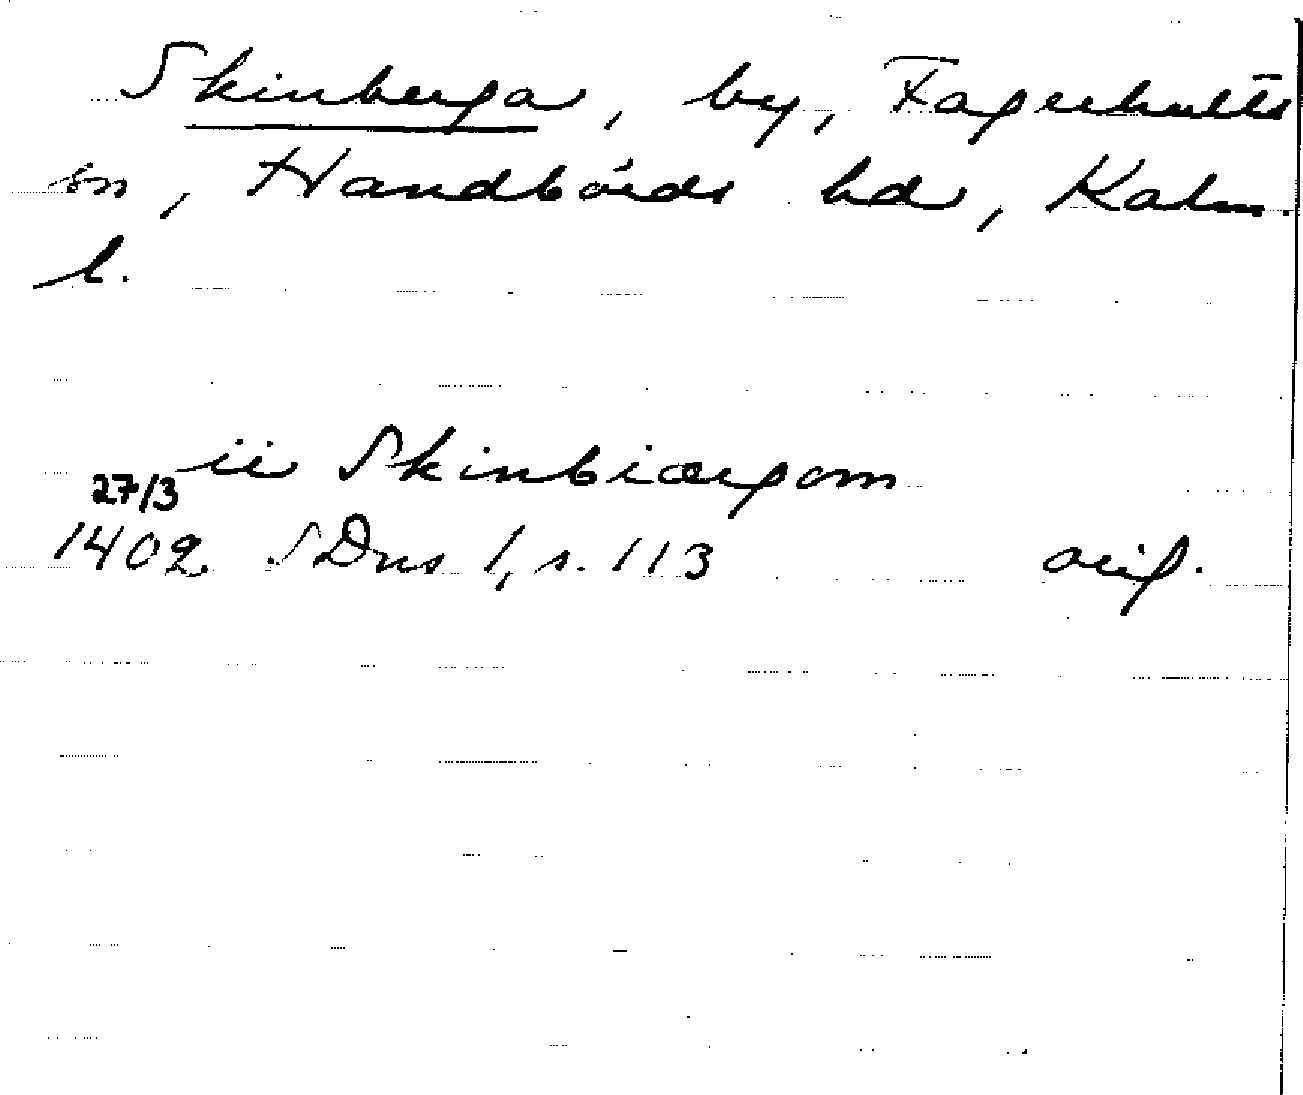 Skinberga, by, Fagerhults
sn, Handbörds hd, Kalm.
l.
ii Skinbiærgom
27/3
1402 SDns 1, s. 113 orig.